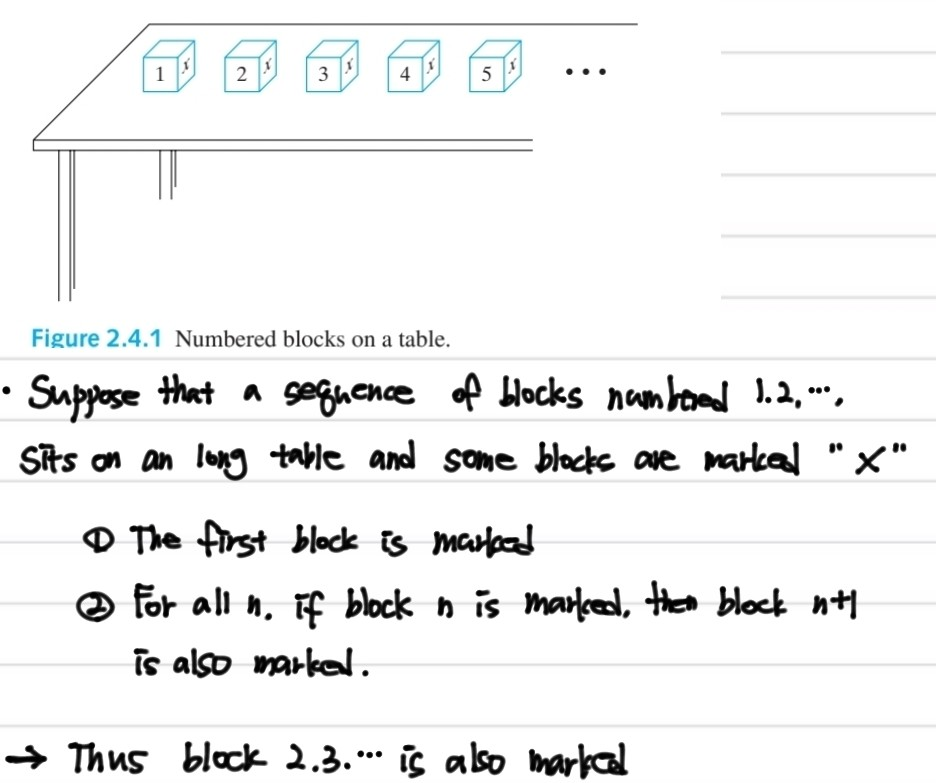 1 x 2 x 3 x 4 x 5 x ...
Figure 2.4.1 Numbered blocks on a table.
· Suppose that a sequence of blocks numbered 1.2, ...,
sits on an long table and some blocks are marked "X"
① The first block is marked
② For all n, if block n is marked, then block n+1
is also marked.
→ Thus block 2.3. ... is also marked